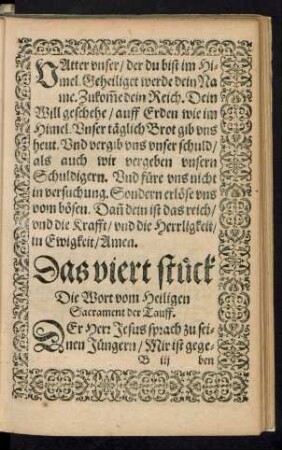 VAtter vnser/ der du bist im Hi-
mel. Geheiliget werde dein Na-
me. Zukom̃e dein Reich. Dein
Will geschehe/ auff Erden wie im
Himel. Vnser täglich Brot gib vns
heut. Vnd vergib vns vnser schuld/
als auch wir vergeben vnsern
Schuldigern. Vnd füre vns nicht
in versuchung. Sondern erlöse vns
vom bösen. Dañ dein ist das reich/
vnd die Krafft/ vnd die Herrligkeit/
in Ewigkeit/ Amen.
Das viert stück
Die Wort vom Heiligen
Sacrament der Tauff.
DEr Herr Jesus sprach zu sei-
nen Jüngern/ Mir ist gege-
B iij ben